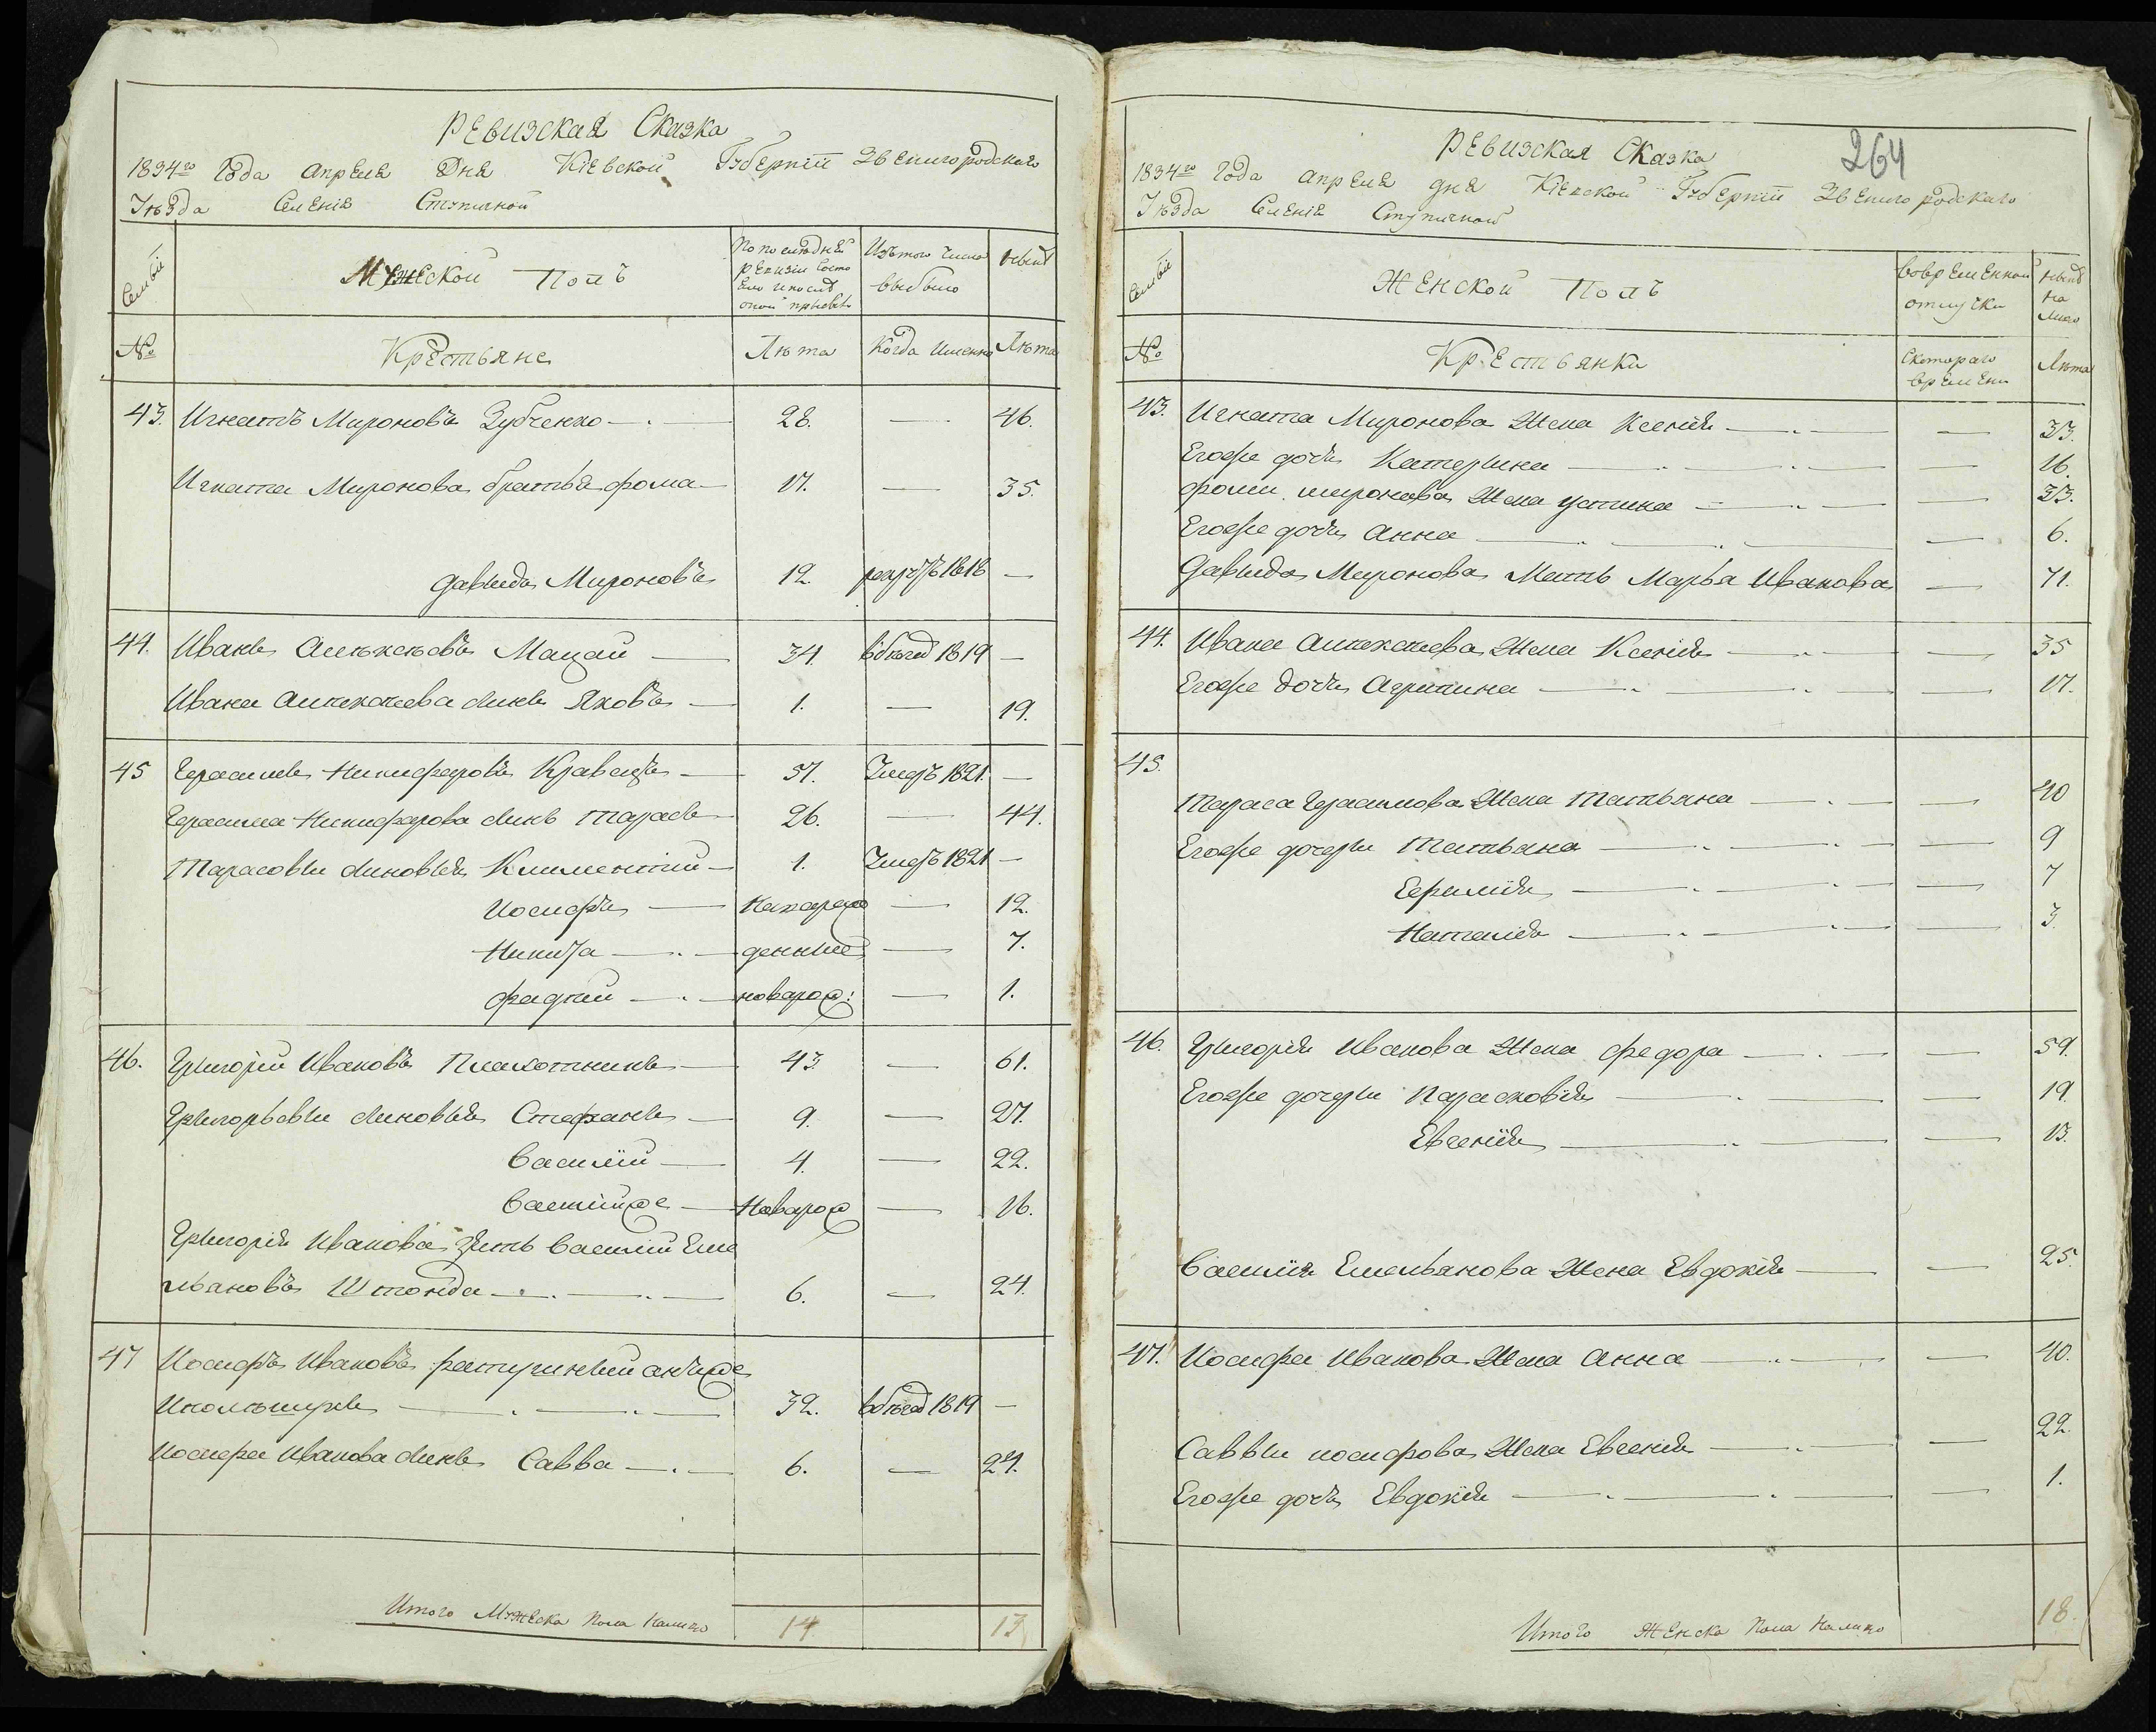 Ревизская Сказка
1834го Года Апреля Дня Кіевской Губерніи Звенигородскаго
Уѣзда Селенія Ступичной
Семьи
Мужеской Полъ
По последней ревизіи состояло и после оной прибыло
Изъ того числа выбыло
Ныне
№
Крестьяне
Лѣта
Когда Именно
Лѣта
43. Игнатъ Мироновъ Зубченко 28. — 46.
Игната Миронова братья Фома 17. — 35.
Давыдъ Мироновъ 12. рекрутъ 1818 —
44. Иванъ Алѣксѣовъ Мацай 34. в бѣгах 1819 —
Ивана Алѣксѣева Синъ Яковъ 1. — 19.
45 Герасимъ Никифоровъ Кравецъ 51. Умеръ 1821. —
Герасима Никифорова Синъ Тарасъ 26. — 44.
Тарасовы Синовья Климентій 1. Умеръ 1821 —
Иосифъ — 12.
Никита — 7.
Фадтей новарож: — 1.
46. Григорій Ивановъ Плахотникъ 43 — 61.
Григорьевы Синовья Стефанъ 9. — 27.
Василій 4. — 22.
Василій же Новарож — 16.
Григорія Иванова Зять Василій Еме
льяновъ Штонда 6. — 24.
47 Иосифъ Ивановъ онъ же
32. в бѣгах 1819 —
Иосифа Иванова Синъ Савва 6. — 24.
Итого Мужеска Пола Налицо 14 13
264
Ревизская Сказка
1834го Года Апреля дня Кіевской Губерніи Звенигородскаго
Уѣзда Селенія Ступичной
Семьи
Женской Полъ
Во временной отлучки
Ныне на лицо
№
Крестьянки
С котораго времени
Лѣта
43. Игната Миронова Жена Ксенія — 33.
Егоже дочь Катерина — 16.
Фоми Миронова Жена Устина — 33.
Егоже дочь Анна — 6.
Давыда Миронова Мать Марья Иванова — 71.
44. Ивана Алѣксѣева Жена Ксенія — 35
Егоже дочь Агрипина — 17.
45.
Тараса Герасимова Жена Татьяна — 40
Егоже дочери Татьяна — 9
Ефимія — 7
Наталія — 3
46. Григорія Иванова Жена Федора — 59.
Егоже дочери Парасковія — 19.
Евгенія — 13.
Василія Емельянова Жена Евдокія — 25.
47. Иосифа Иванова Жена Анна — 40.
Саввы Иосифова Жена Евгенія — 22.
Егоже дочь Евдокія — 1.
Итого Женска Пола Налицо 18.